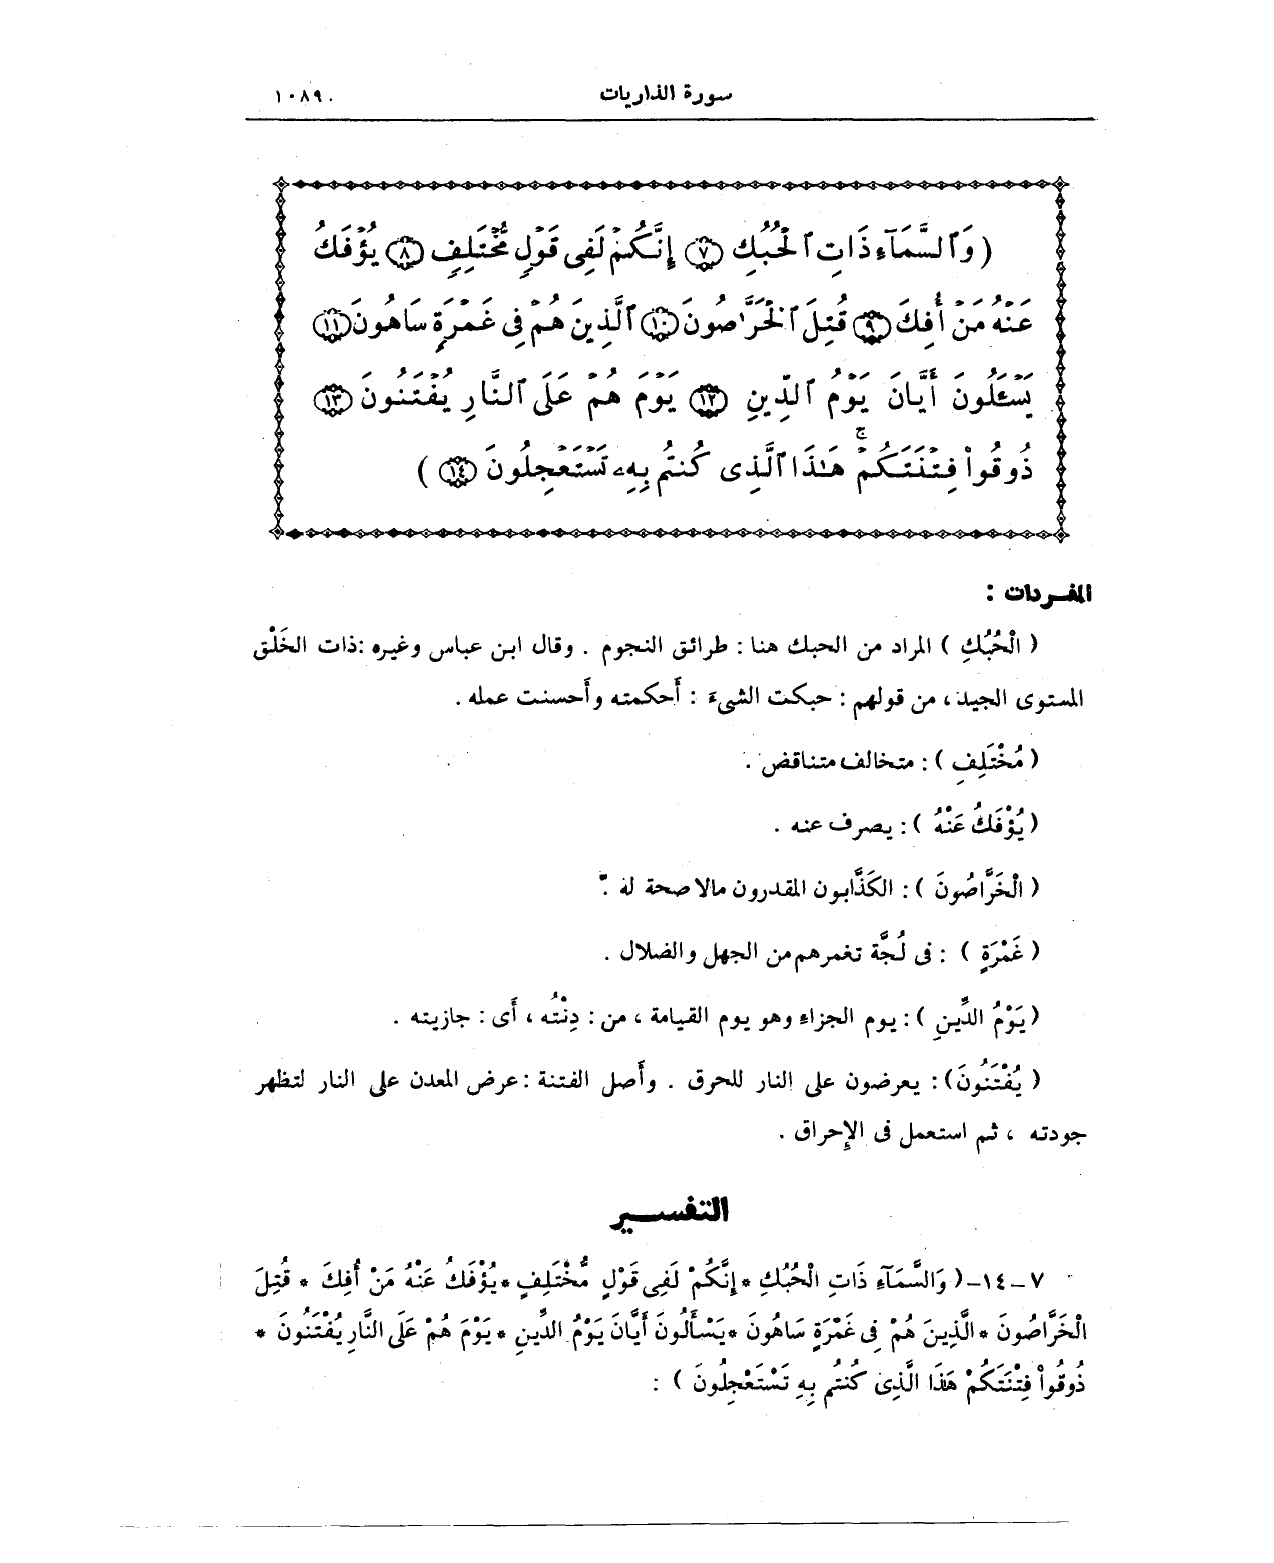 سورة الذاريات ١٠٨٩
( وَٱلسَّمَآءِ ذَاتِ ٱلْحُبُكِ ٧ إِنَّكُمْ لَفِى قَوْلٍ مُّخْتَلِفٍ ٨ يُؤْفَكُ
عَنْهُ مَنْ أُفِكَ ٩ قُتِلَ ٱلْخَرَّٰصُونَ ١٠ ٱلَّذِينَ هُمْ فِى غَمْرَةٍ سَاهُونَ ١١
يَسْـَٔلُونَ أَيَّانَ يَوْمُ ٱلدِّينِ ١٢ يَوْمَ هُمْ عَلَى ٱلنَّارِ يُفْتَنُونَ ١٣
ذُوقُوا۟ فِتْنَتَكُمْ ۚ هَـٰذَا ٱلَّذِى كُنتُم بِهِۦ تَسْتَعْجِلُونَ ١٤ )
المفردات :
( الْحُبُكِ ) المراد من الحبك هنا : طرائق النجوم . وقال ابن عباس وغيره : ذات الخَلْق
المستوى الجيد ، من قولهم : حبكت الشىءَ : أَحكمته وأَحسنت عمله .
( مُخْتَلِفٍ ) : متخالف متناقض .
( يُؤْفَكُ عَنْهُ ) : يصرف عنه .
( الْخَرَّاصُونَ ) : الكَذَّابون المقدرون مالا صحة له .
( غَمْرَةٍ ) : فى لُجَّة تغمرهم من الجهل والضلال .
( يَوْمُ الدِّينِ ) : يوم الجزاء وهو يوم القيامة ، من : دِنْتُه ، أَى : جازيته .
( يُفْتَنُونَ ) : يعرضون على النار للحرق . وأَصل الفتنة : عرض المعدن على النار لتظهر
جودته ، ثم استعمل فى الإِحراق .
التفسير
٧ - ١٤ - ( وَالسَّمَآءِ ذَاتِ الْحُبُكِ * إِنَّكُمْ لَفِى قَوْلٍ مُّخْتَلِفٍ * يُؤْفَكُ عَنْهُ مَنْ أُفِكَ * قُتِلَ
الْخَرَّاصُونَ * الَّذِينَ هُمْ فِى غَمْرَةٍ سَاهُونَ * يَسْأَلُونَ أَيَّانَ يَوْمُ الدِّينِ * يَوْمَ هُمْ عَلَى النَّارِ يُفْتَنُونَ *
ذُوقُواْ فِتْنَتَكُمْ هَذَا الَّذِى كُنْتُم بِهِ تَسْتَعْجِلُونَ ) :